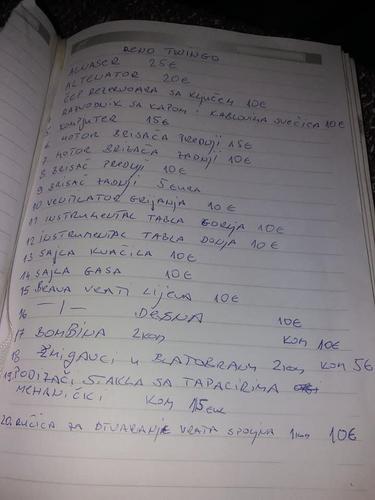 RENO TWINGO
ALNASER 25€
ALTENATOR 20€
ČEP REZERVOARA SA KLJUČEM 10€
RAZVODNIK SA KAPOM i KABLOVIMA SVEĆICA 10€
5 KOMPJUTER 15€
6 MOTOR BRISAČA PREDNJI 15€
7 MOTOR BRISAČA ZADNJI 10€
8 BRISAČ PREDNJI 10€
9 BRISAČ ZADNJI 5 EURA
10 VENTILATOR GRIJANJA 10€
11 INSTRUMENTAL TABLA GORNJA 10€
12 INSTRUMENTAL TABLA DONJA 10€
13 SAJLA KVAČILA 10€
14 SAJLA GASA 10€
15 BRAVA VRATI LIJEVA 10€
16 —I— DESNA 10€
17 BOMBINA 2KOM KOM 10€
18 ŽMIGAVCI U BLATOBRANU 2KOM KOM 5€
19 PODIZAČI STAKLA SA TAPACIRIMA
MEHANIČKI KOM 15 EUR
20. RUČICA ZA OTVARANJE VRATA SPOLJNA 1KOM 10€